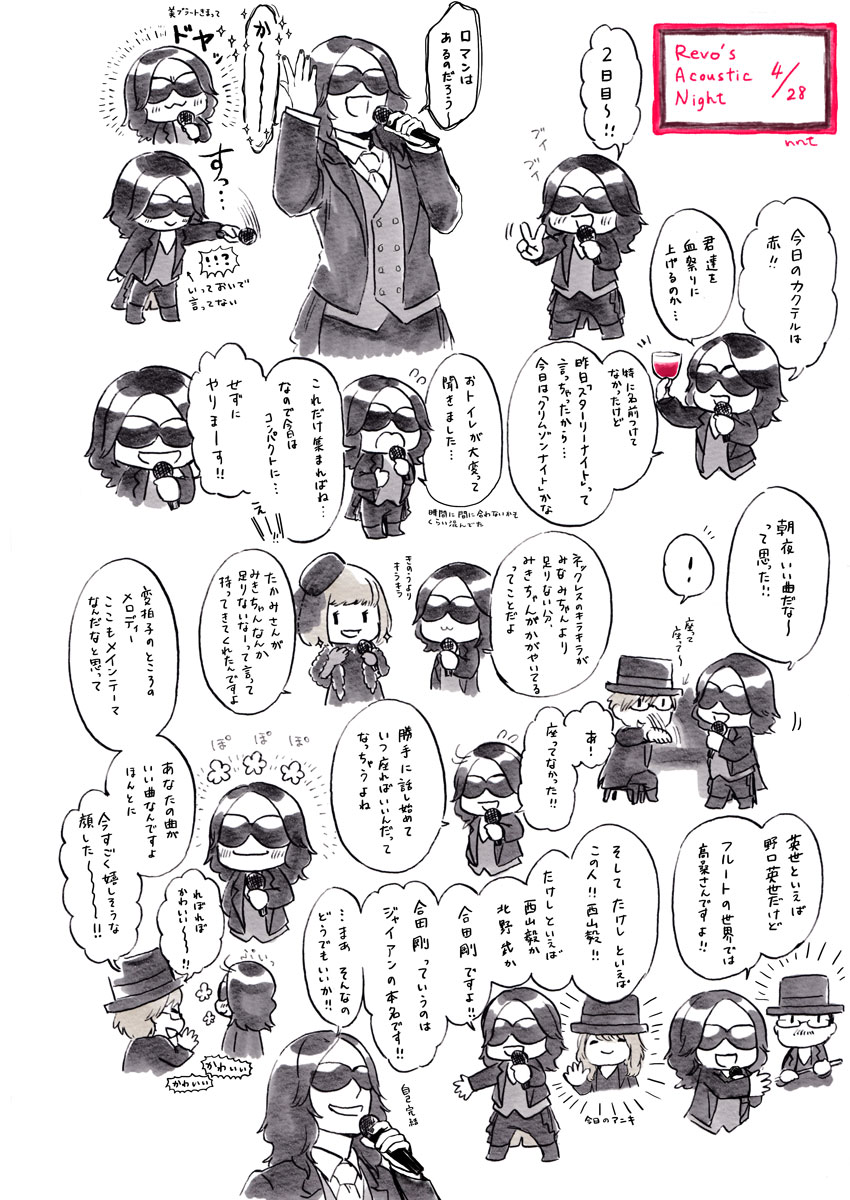 Revo's
Acoustic
Night
4/28
nnt
2日目〜!!
ブイ
ブイ
ロマンは
あるのだろう〜
か〜〜〜
美ブラートきまって
ドヤッ
すっ…
!!?
いっておいで
言ってない
今日のカクテルは
赤!!
君達を
血祭りに
上げるのか…
特に名前つけて
なかったけど
昨日「スターリーナイト」って
言っちゃったから…
今日は「クリムゾンナイト」かな
おトイレが大変って
聞きました…
時間に間に合わないかも
くらい混んでた
これだけ集まればね…
なので今日は
コンパクトに…
え!!!
せずに
やりまーす!!
朝夜いい曲だな〜
って思った!!
!
座って
座って〜
あ!
座ってなかった!!
ネックレスのキラキラが
みなみちゃんより
足りない分、
みきちゃんがかがやいてる
ってことだよ
きのうより
キラキラ
たかみさんが
みきちゃんなんか
足りないなーって言って
持ってきてくれたんですよ
勝手に話し始めて
いつ座ればいいんだって
なっちゃうよね
変拍子のところの
メロディー
ここもメインテーマ
なんだなと思って
あなたの曲が
いい曲なんですよ
ほんとに
ぽ ぽ ぽ
今すごく嬉しそうな
顔した〜〜〜!!
ればれば
かわいい〜〜!!
かわいい
かわいい
英世といえば
野口英世だけど
フルートの世界では
高桑さんですよ!!
そして たけしといえば
この人!!西山毅!!
今日のアニキ
たけしといえば
西山毅か
北野武か
合田剛ですよ!!
合田剛っていうのは
ジャイアンの本名です!!
…まあ そんなの
どうでもいいか!!
自己完結